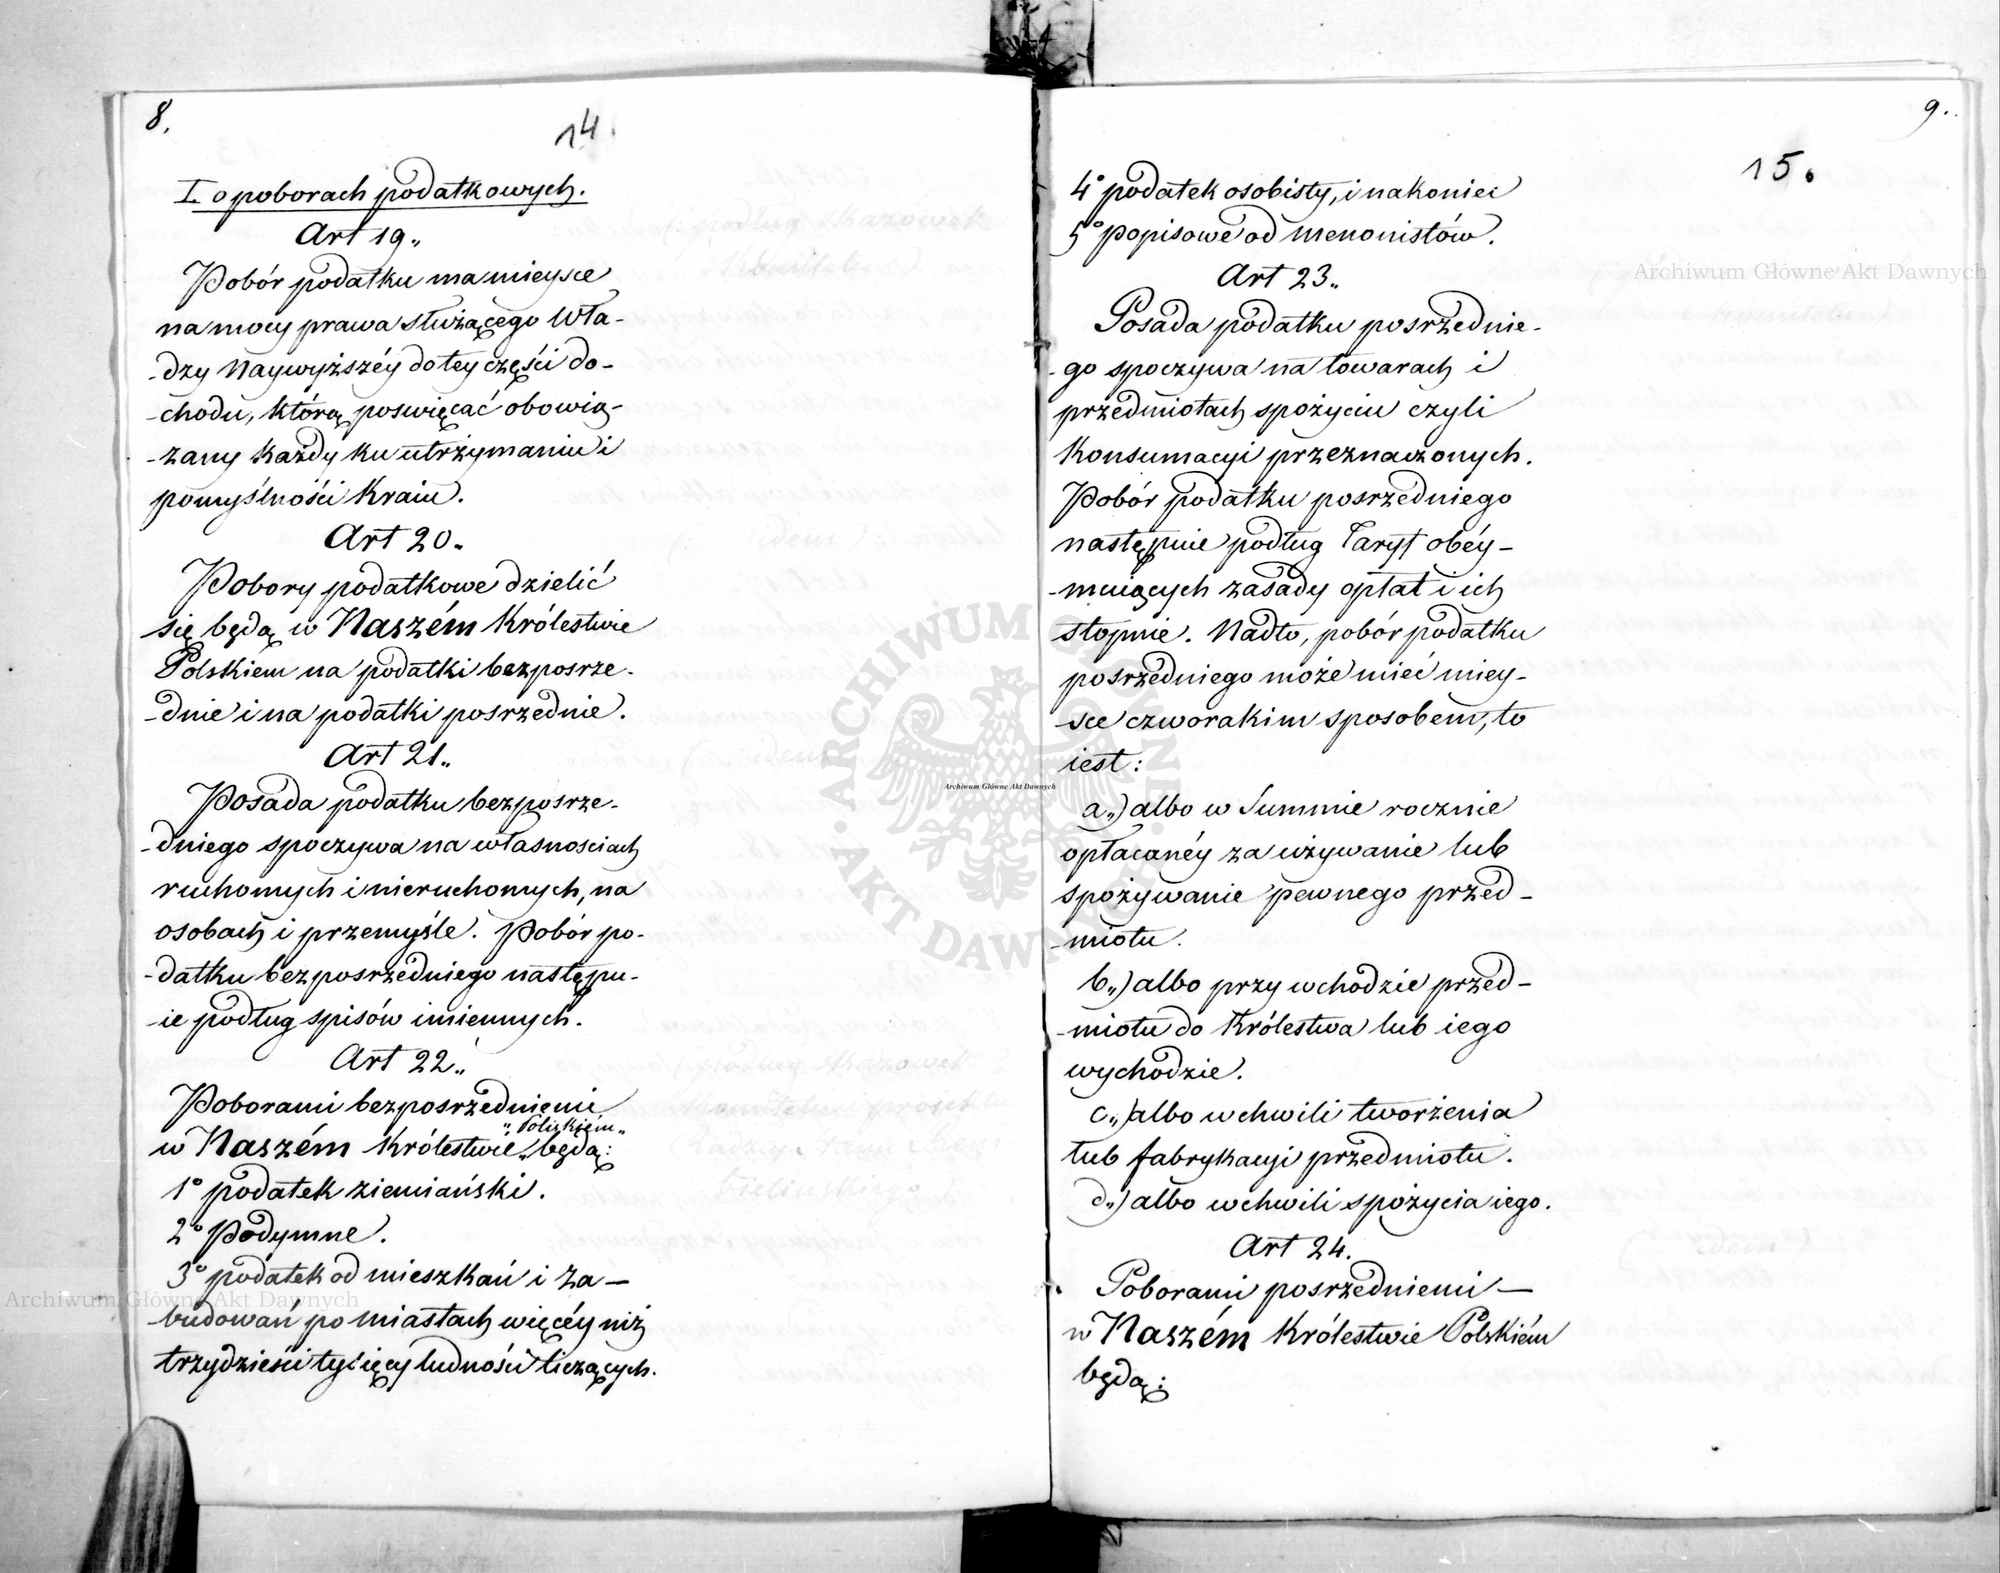 8.
14.
I. o poborach podatkowych.
Art 19.
Pobór podatku ma mieysce
na mocy prawa służącego Wła-
-dzy Naywyższéy do tey części do-
-chodu, którą poswięcać obowią-
-zany każdy ku utrzymaniu i
pomyślności Kraiu.
Art 20.
Pobory podatkowe dzielić
się będą w Naszém Królestwie
Polskiem na podatki bezposrze-
-dnie i na podatki posrzednie.
Art 21.
Posada podatku bezposrze-
-dniego spoczywa na własnosciach
ruchomych i nieruchomych, na
osobach i przemyśle. Pobór po-
-datku bezposrzedniego następu-
-ie podług spisów imiennych.
Art 22.
Poborami bezposrzedniemi
„Polskiém„
w Naszém Królestwie „ będą:
1° podatek ziemiański.
2° Podymne.
3° podatek od mieszkań i za-
-budowań po miastach więcéy niż
trzydzieści tysięcy ludności liczących.
9.
15.
4° podatek osobisty, i nakoniec
5° popisowe od menonistów.
Art 23.
Posada podatku posrzednie-
-go spoczywa na towarach i
przedmiotach spożyciu czyli
Konsumacyi przeznaczonych.
Pobór podatku posrzedniego
następnie podług Taryf obéy-
-muiących zasady opłat i ich
stopnie. Nadto, pobór podatku
posrzedniego może mieć miey-
-sce czworakim sposobem, to
iest:
a.) albo w Summie rocznie
opłacanéy za używanie lub
spożywanie pewnego przed-
-miotu.
b.) albo przy wchodzie przed-
-miotu do Królestwa lub iego
wychodzie.
c.) albo w chwili tworżenia
lub fabrykacyi przedmiotu.
d.) albo w chwili spożycia iego.
Art 24.
Poborami posrzedniemi —
w Naszém Królestwie Polskiém
będą:
Archiwum Główne Akt Dawnych
ARCHIWUM GŁÓWNE AKT DAWNYCH
Archiwum Główne Akt Dawnych
Archiwum Główne Akt Dawnych